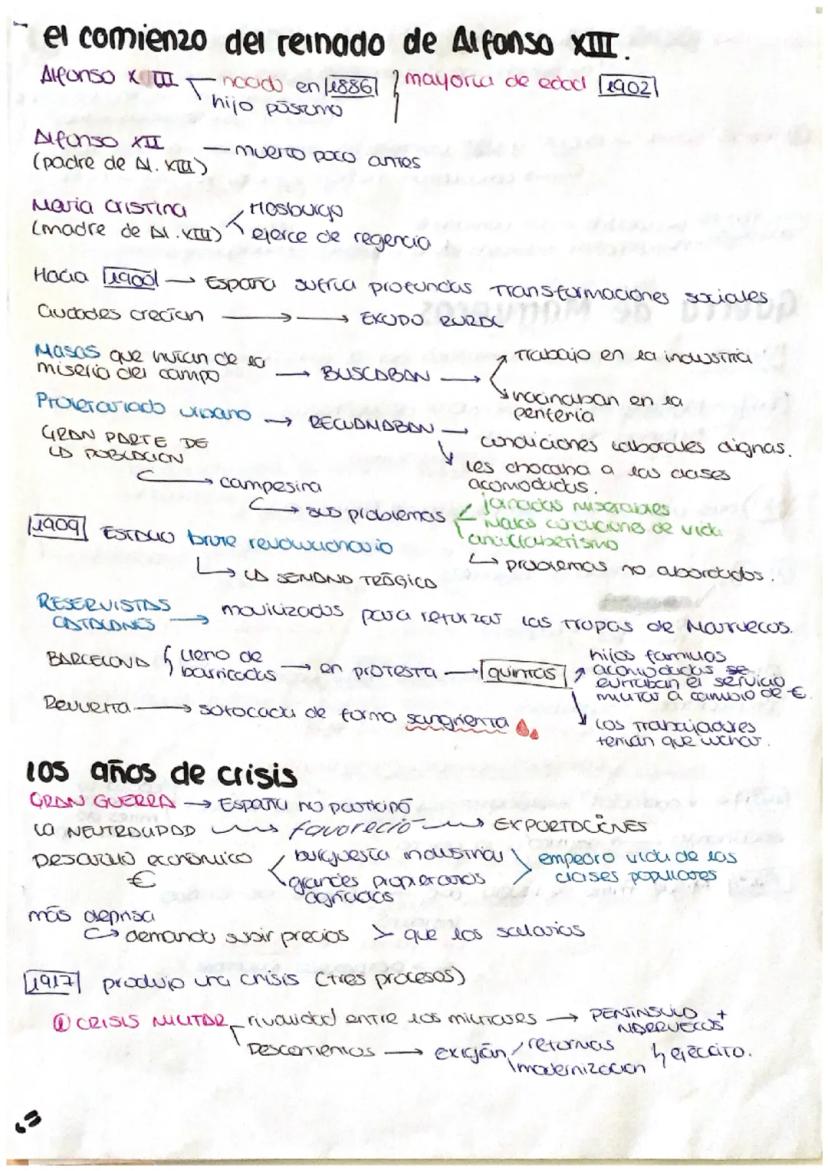 el comienzo del reinado de Alfonso XIII.
Alfonso XIII nacido en 1886 mayoría de edad 1902
hijo póstumo
Alfonso XII
(padre de Al. XIII) — muerto poco antes
María Cristina Hasburgo
(madre de Al. XIII) ejerce de regencia
Hacia 1900 → España sufría profundas transformaciones sociales
Ciudades crecían → → ÉXODO RURAL
Masas que huían de la miseria del campo → BUSCABAN → trabajo en la industria
hacinaban en la periferia
Proletariado urbano → RECLAMABAN — condiciones laborales dignas.
les chocaba a las clases acomodadas.
GRAN PARTE DE LA POBLACIÓN
→ campesina
→ sus problemas
jornadas miserables
malas condiciones de vida
analfabetismo
→ problemas no abordados.
1909 ESTALLO brote revolucionario
→ LA SEMANA TRÁGICA
RESERVISTAS CATALANES → movilizados para reforzar las tropas de Marruecos.
BARCELONA lleno de barricadas → en PROTESTA → quintas
hijos familias acomodadas se evitaban el servicio militar a cambio de €.
los trabajadores tenían que luchar.
Revuelta → sofocada de forma sangrienta
los años de crisis
GRAN GUERRA → España no participó
LA NEUTRALIDAD → favoreció → EXPORTACIONES
DESARROLLO económico €
burguesía industrial
grandes propietarios agrícolas
empeoró vida de las clases populares
más deprisa
→ demanda subir precios > que los salarios
1917 produjo una crisis (tres procesos)
① CRISIS MILITAR rivalidad entre los militares → PENÍNSULA + MARRUECOS
Descontentos → exigían reformas
modernización
↳ ejército.